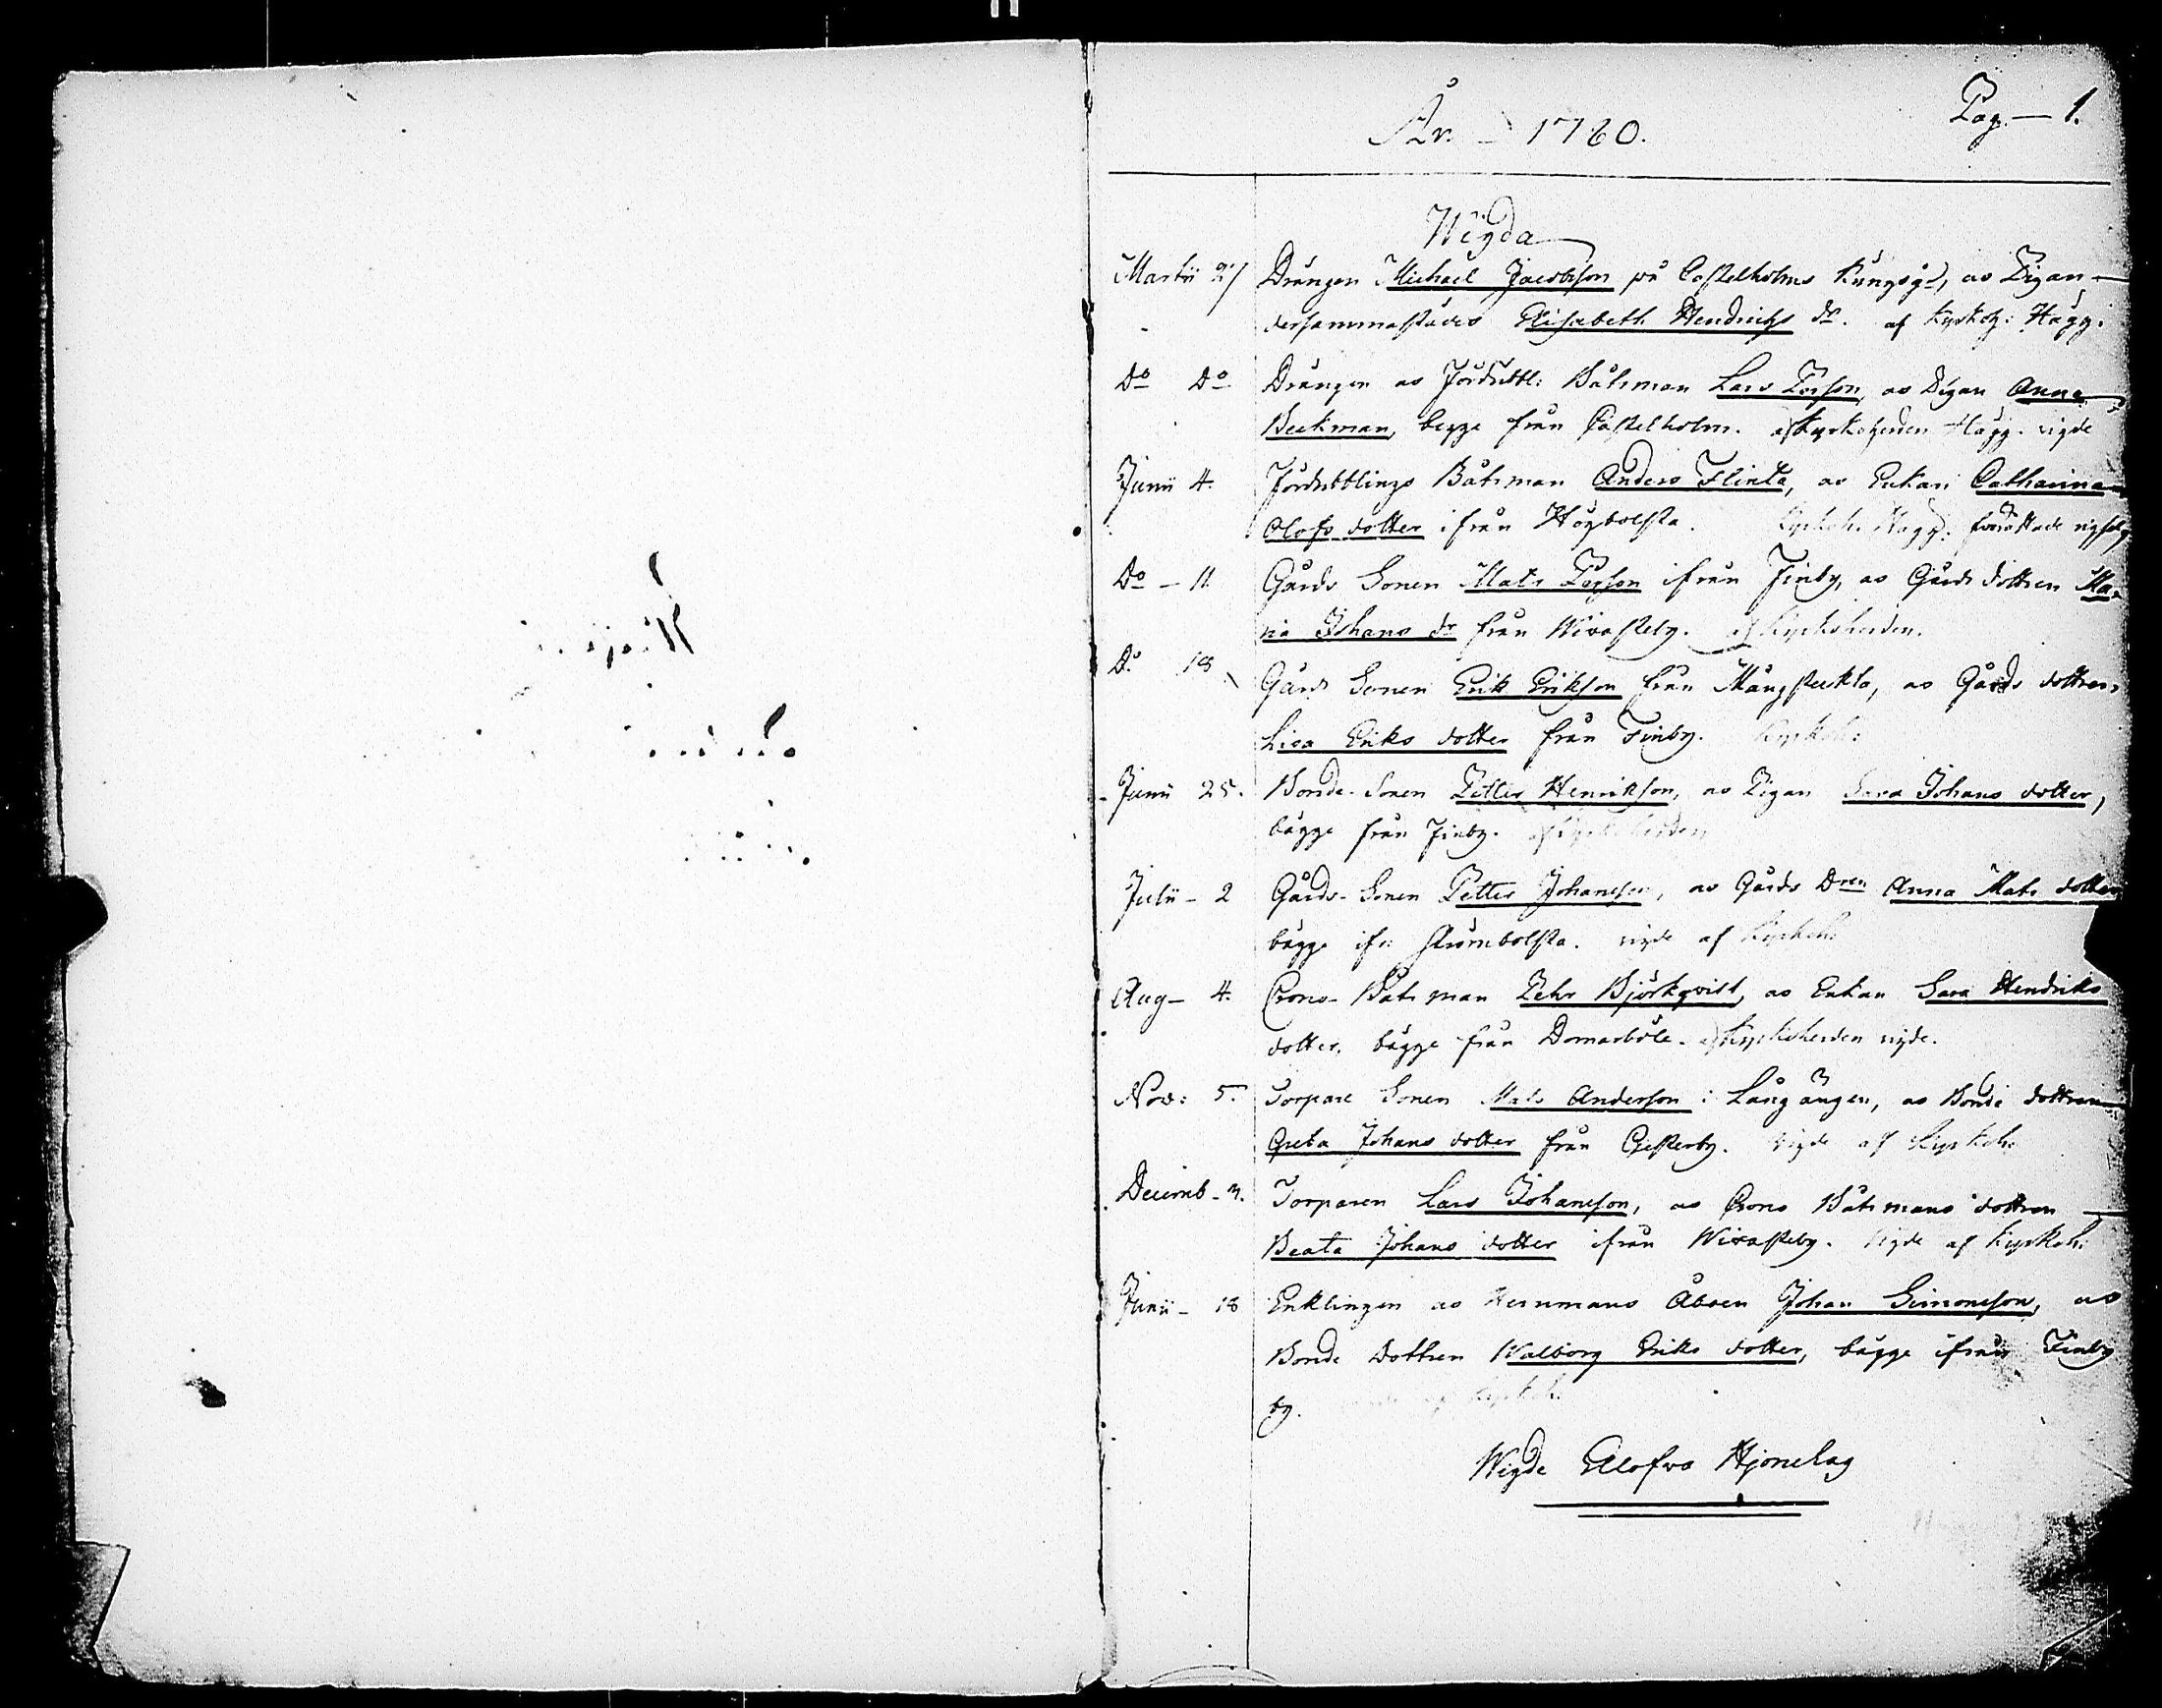 Pag. — 1.
År. — 1780.
Wigda
Martii 27 Drängen Michael Jacobsson på Castelholms Kungsgd, as Pigan
dersammastädes Elisabeth Hendrichs dr. af Kyrkoh: Hägg.
Do Do Drängen as Fördubbl: Båtsman Lars Persson, as Pigan Anna
Beckman, begge från Castelholm. af Kyrkoherden Hägg. vigde
Junii 4. Fördubblings Båtsman Anders Flinta, as Enkan Catharina
Olofs dotter ifrån Högbolsta. Kyrkoh. Hägg. förrättade
Do — 11. Gårds Sonen Mats Person ifrån Finby, as Gårds dottren Ma-
ria Johans dr från Wivasteby. af Kyrkoherden.
Do 18 Gårds Sonen Erik Erikson från Mångstekta, as Gårds dottren
Lisa Eriks dotter från Finby. Kyrkoh:
Junii 25. Bonde-Sonen Petter Henrikson, as Pigan Sara Johans dotter,
bägge från Finby. af Kyrkoherden
Julii — 2 Gårds-Sonen Petter Johansson, as Gårds Dren Anna Mats dotter
bägge ifr: Strömbolsta. vigde af Kyrkoh:
Aug — 4. Crono-Båtsman Pehr Björkqvist, as Enkan Sara Hendriks
dotter, bägge från Domarböle. af Kyrkoherden vigde.
Nov: 5. Torpare Sonen Mats Anderson i Långängen, as Bonde dottren
Greta Johans dotter från Gesterby. vigde af Kyrkoh:
Decemb — 3. Torparen Lars Johansson, as Crono Båtsmans dottren
Beata Johans dotter ifrån Wivasteby. Vigde af Kyrkoh:
Junii — 18 Enklingen as Hemmans Åboen Johan Simonsson, as
Bonde Dottren Walborg Eriks dotter, bägge ifrån Finby
by. af Kyrkoh.
Wigde Elofva Hjonelag